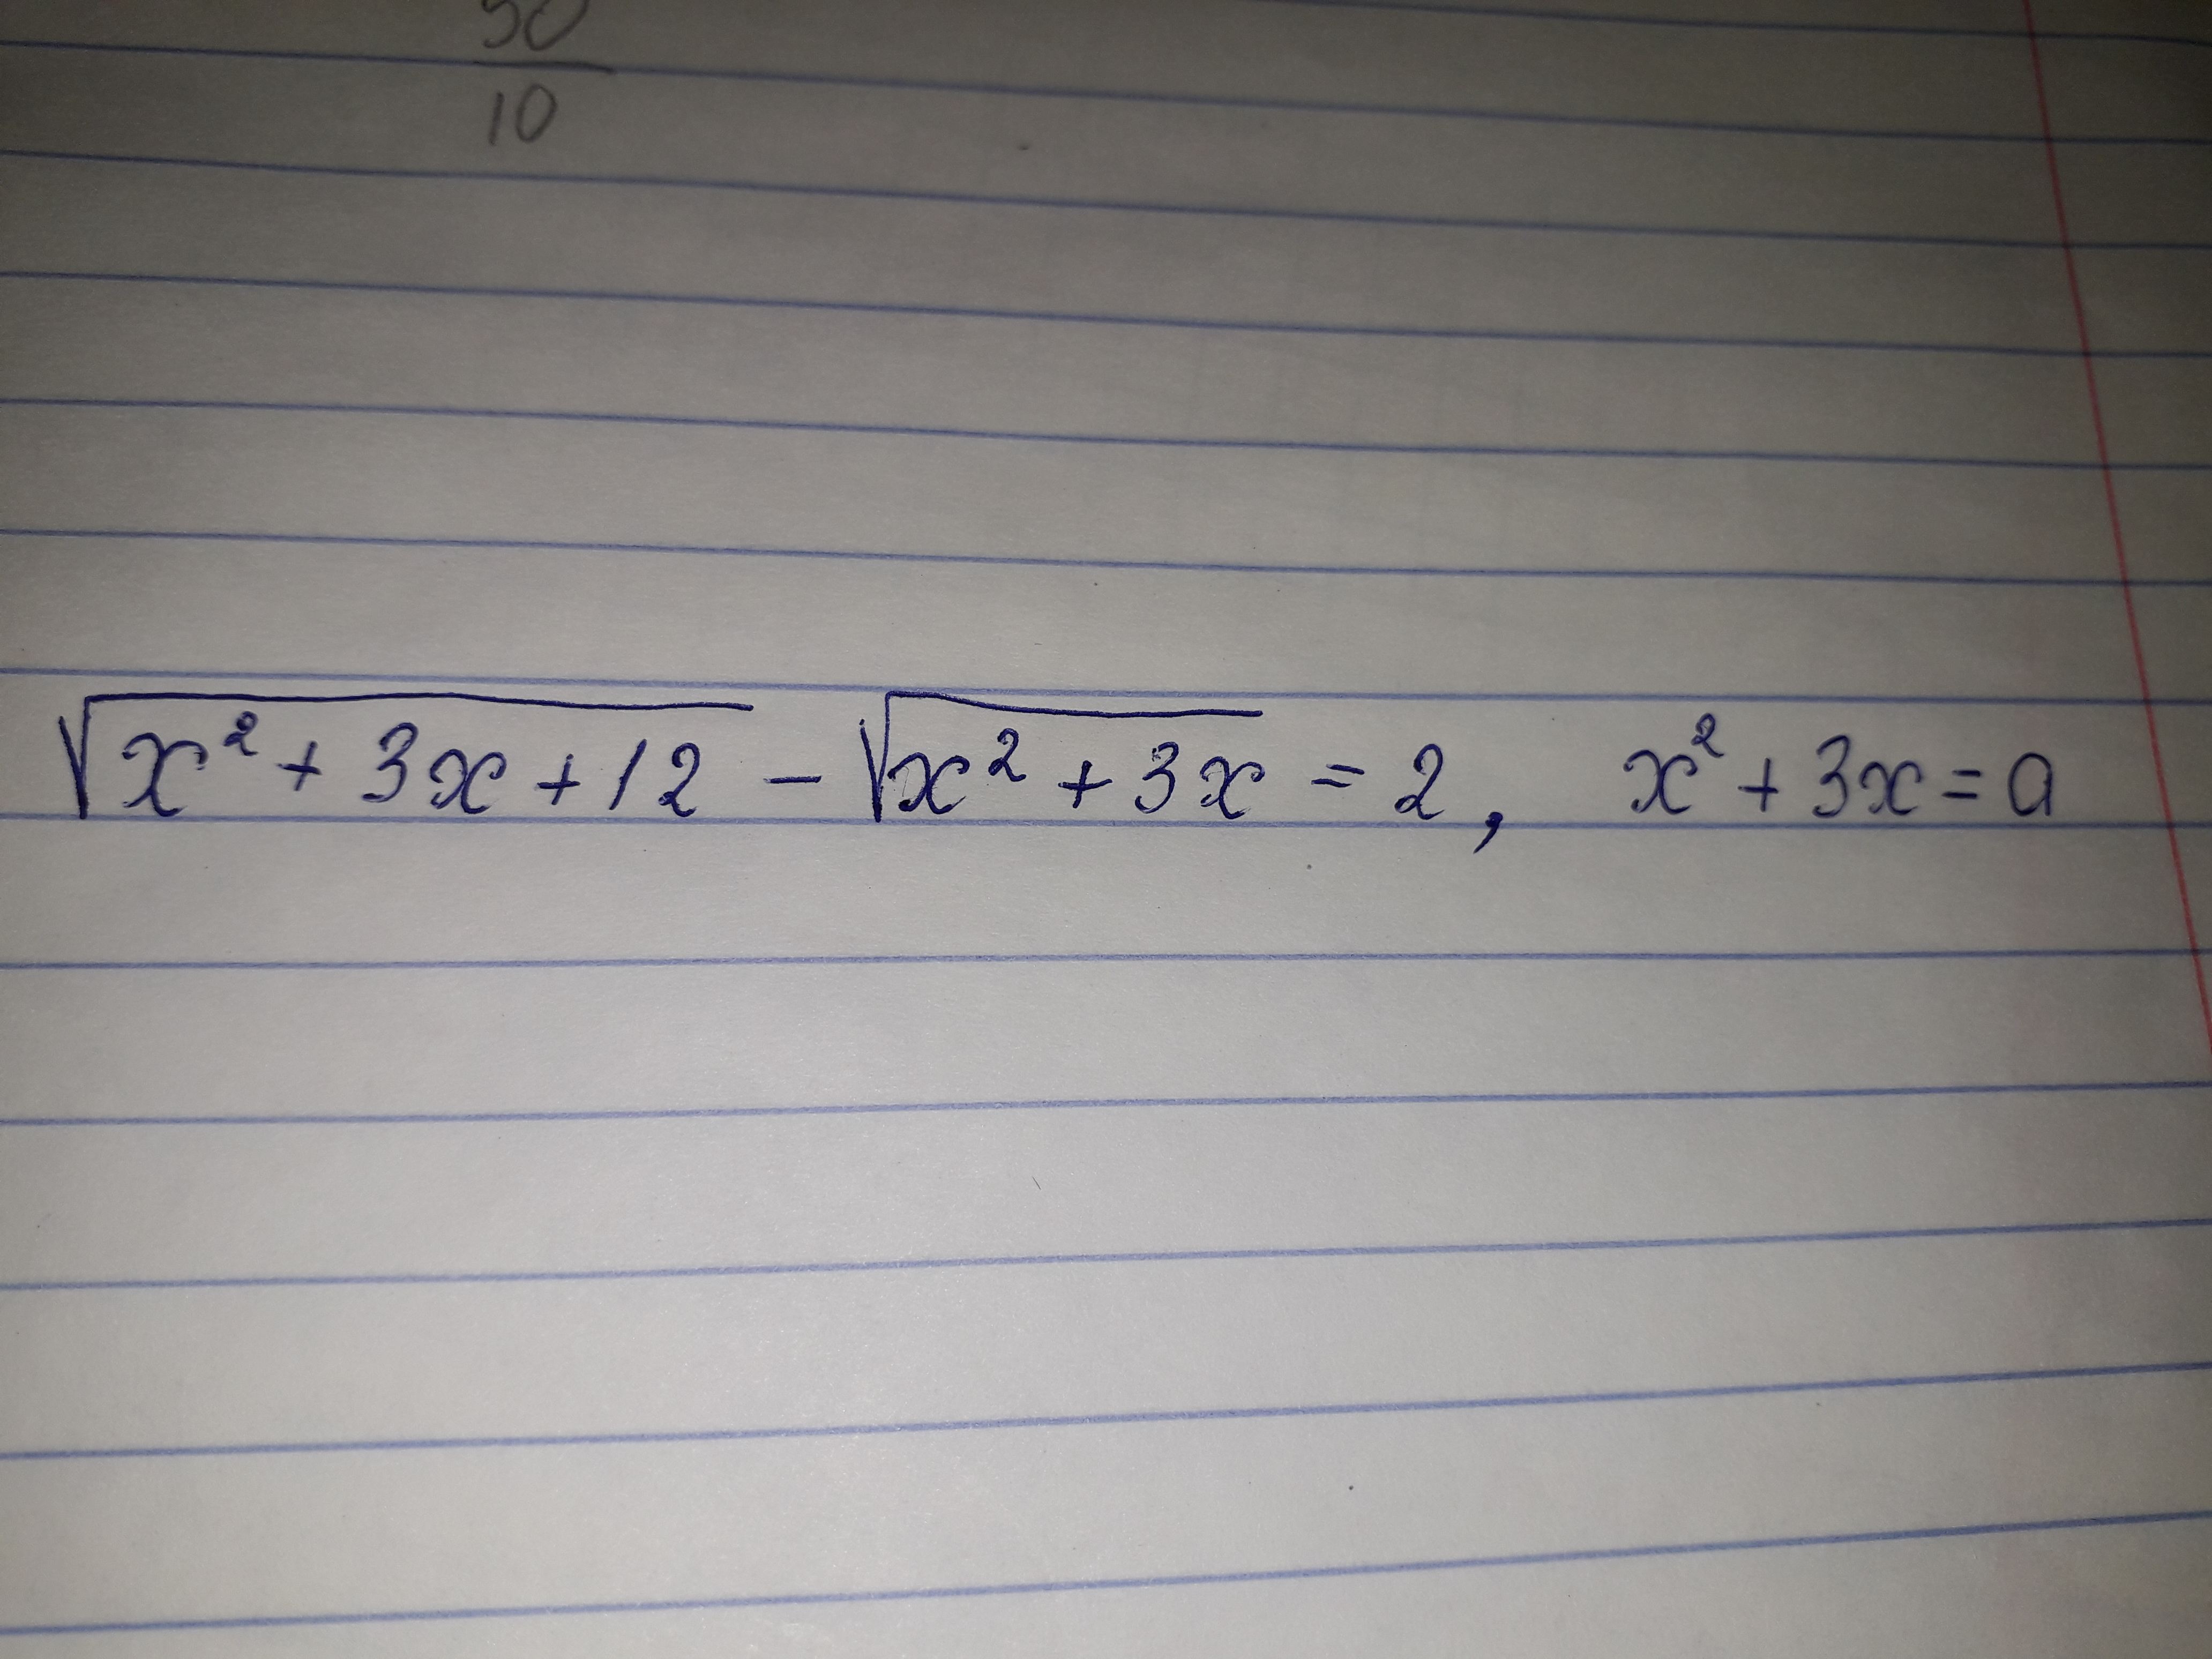 10
√(x² + 3x + 12) − √(x² + 3x) = 2, x² + 3x = a